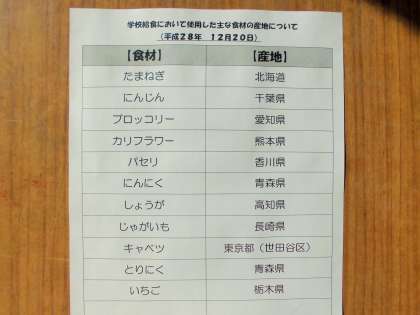 学校給食において使用した主な食材の産地について
（平成２８年　１２月２０日）
【食材】 【産地】
たまねぎ 北海道
にんじん 千葉県
ブロッコリー 愛知県
カリフラワー 熊本県
パセリ 香川県
にんにく 青森県
しょうが 高知県
じゃがいも 長崎県
キャベツ 東京都（世田谷区）
とりにく 青森県
いちご 栃木県